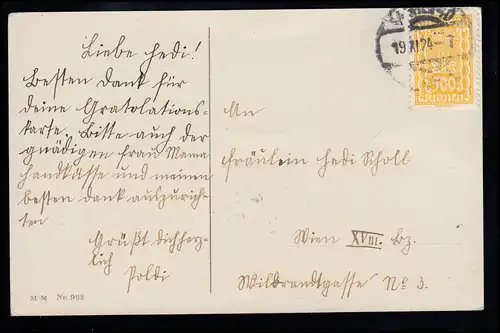 Liebe Hedi!
Besten Dank für
deine Gratolations-
karte. Bitte auch der
gnädigen Frau Mama
Handküsse und meinen
besten Dank auszurich-
ten
Grüßt dichherz-
lich
Poldi
M. M Nr. 993
19.XI.24
500
An
Fräulein Hedi Scholl
Wien XVIII. Bz.
Wilbrandtgasse No 3.